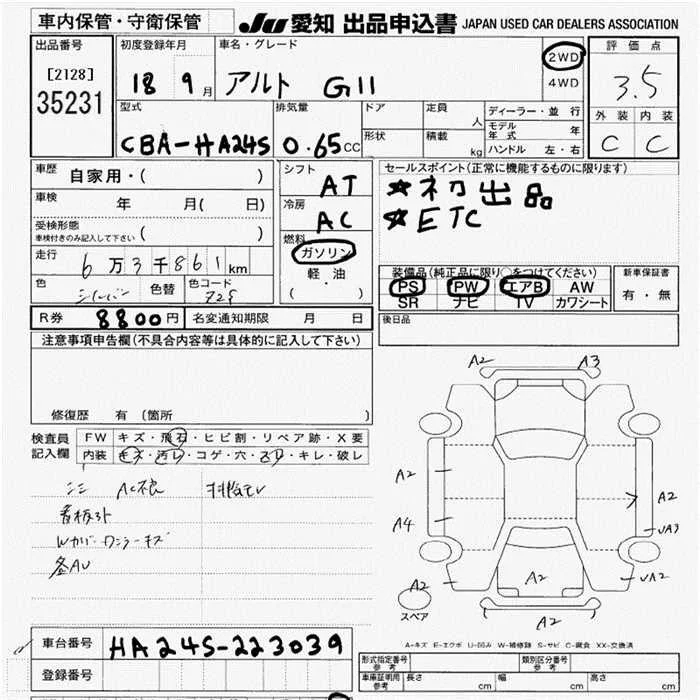 車内保管・守衛保管
JU 愛知 出品申込書 JAPAN USED CAR DEALERS ASSOCIATION
出品番号
[2128]
35231
初度登録年月
18 9月
車名・グレード
アルト GII
2WD
4WD
評価点
3.5
外装 内装
C C
型式
CBA-HA24S
排気量
0.65CC
ドア
形状
定員
人
積載
kg
ディーラー・並行
モデル年式 年
ハンドル 左・右
車歴
自家用・( )
車検
年 月( 日)
受検形態
車検付きのみ記入して下さい ( )
走行
6万3千861km
色
シルバー
色替
色コード
Z2S
シフト
AT
冷房
AC
燃料
ガソリン
軽・油
( )
セールスポイント(正常に機能するものに限ります)
★初出品
★ETC
装備品(純正品に限り○をつけてください)
PS PW エアB AW
SR ナビ TV カワシート
新車保証書
有・無
R券 8800円 名変通知期限 月 日
後日品
注意事項申告欄(不具合内容等は具体的に記入して下さい)
修復歴 有(箇所 )
検査員記入欄
FW キズ・飛石・ヒビ割・リペア跡・X要
内装 キズ・汚レ・コゲ・穴・スリ・キレ・破レ
AC不良
看板跡
Wカバー・ワイラーキズ
各AU
A2 A3
A2
A4
A2
A2
UA3
UA2
A2
A2
スペア
A-キズ E-エクボ U-凹み W-補修跡 S-サビ C-腐食 XX-交換済
車台番号 HA24S-223039
登録番号
形式指定番号 参考
類別区分番号 参考
車庫証明用 参考 長さ cm 幅 cm 高さ cm